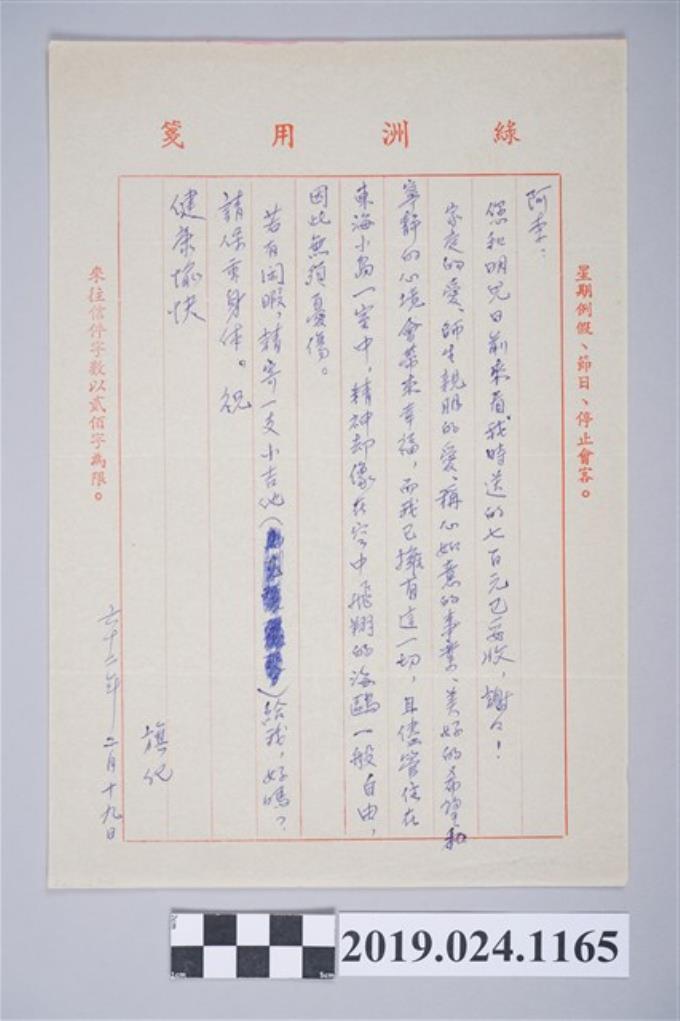 綠洲用箋
星期例假、節日、停止會客。
阿季：
您和明兄日前來看我時送的七百元已妥收，謝々！
家庭的愛、師生親朋的愛、稱心如意的事業、美好的希望和
寧靜的心境會帶來幸福，而我已擁有這一切，且儘管住在
東海小島一室中，精神却像在空中飛翔的海鷗一般自由，
因此無須憂傷。
若有閑暇，請寄一支小吉他（）給我，好嗎？
請保重身体。祝
健康愉快
旗化
六十二年二月十九日
來往信件字數以貳佰字為限。
2019.024.1165
1cm
5cm